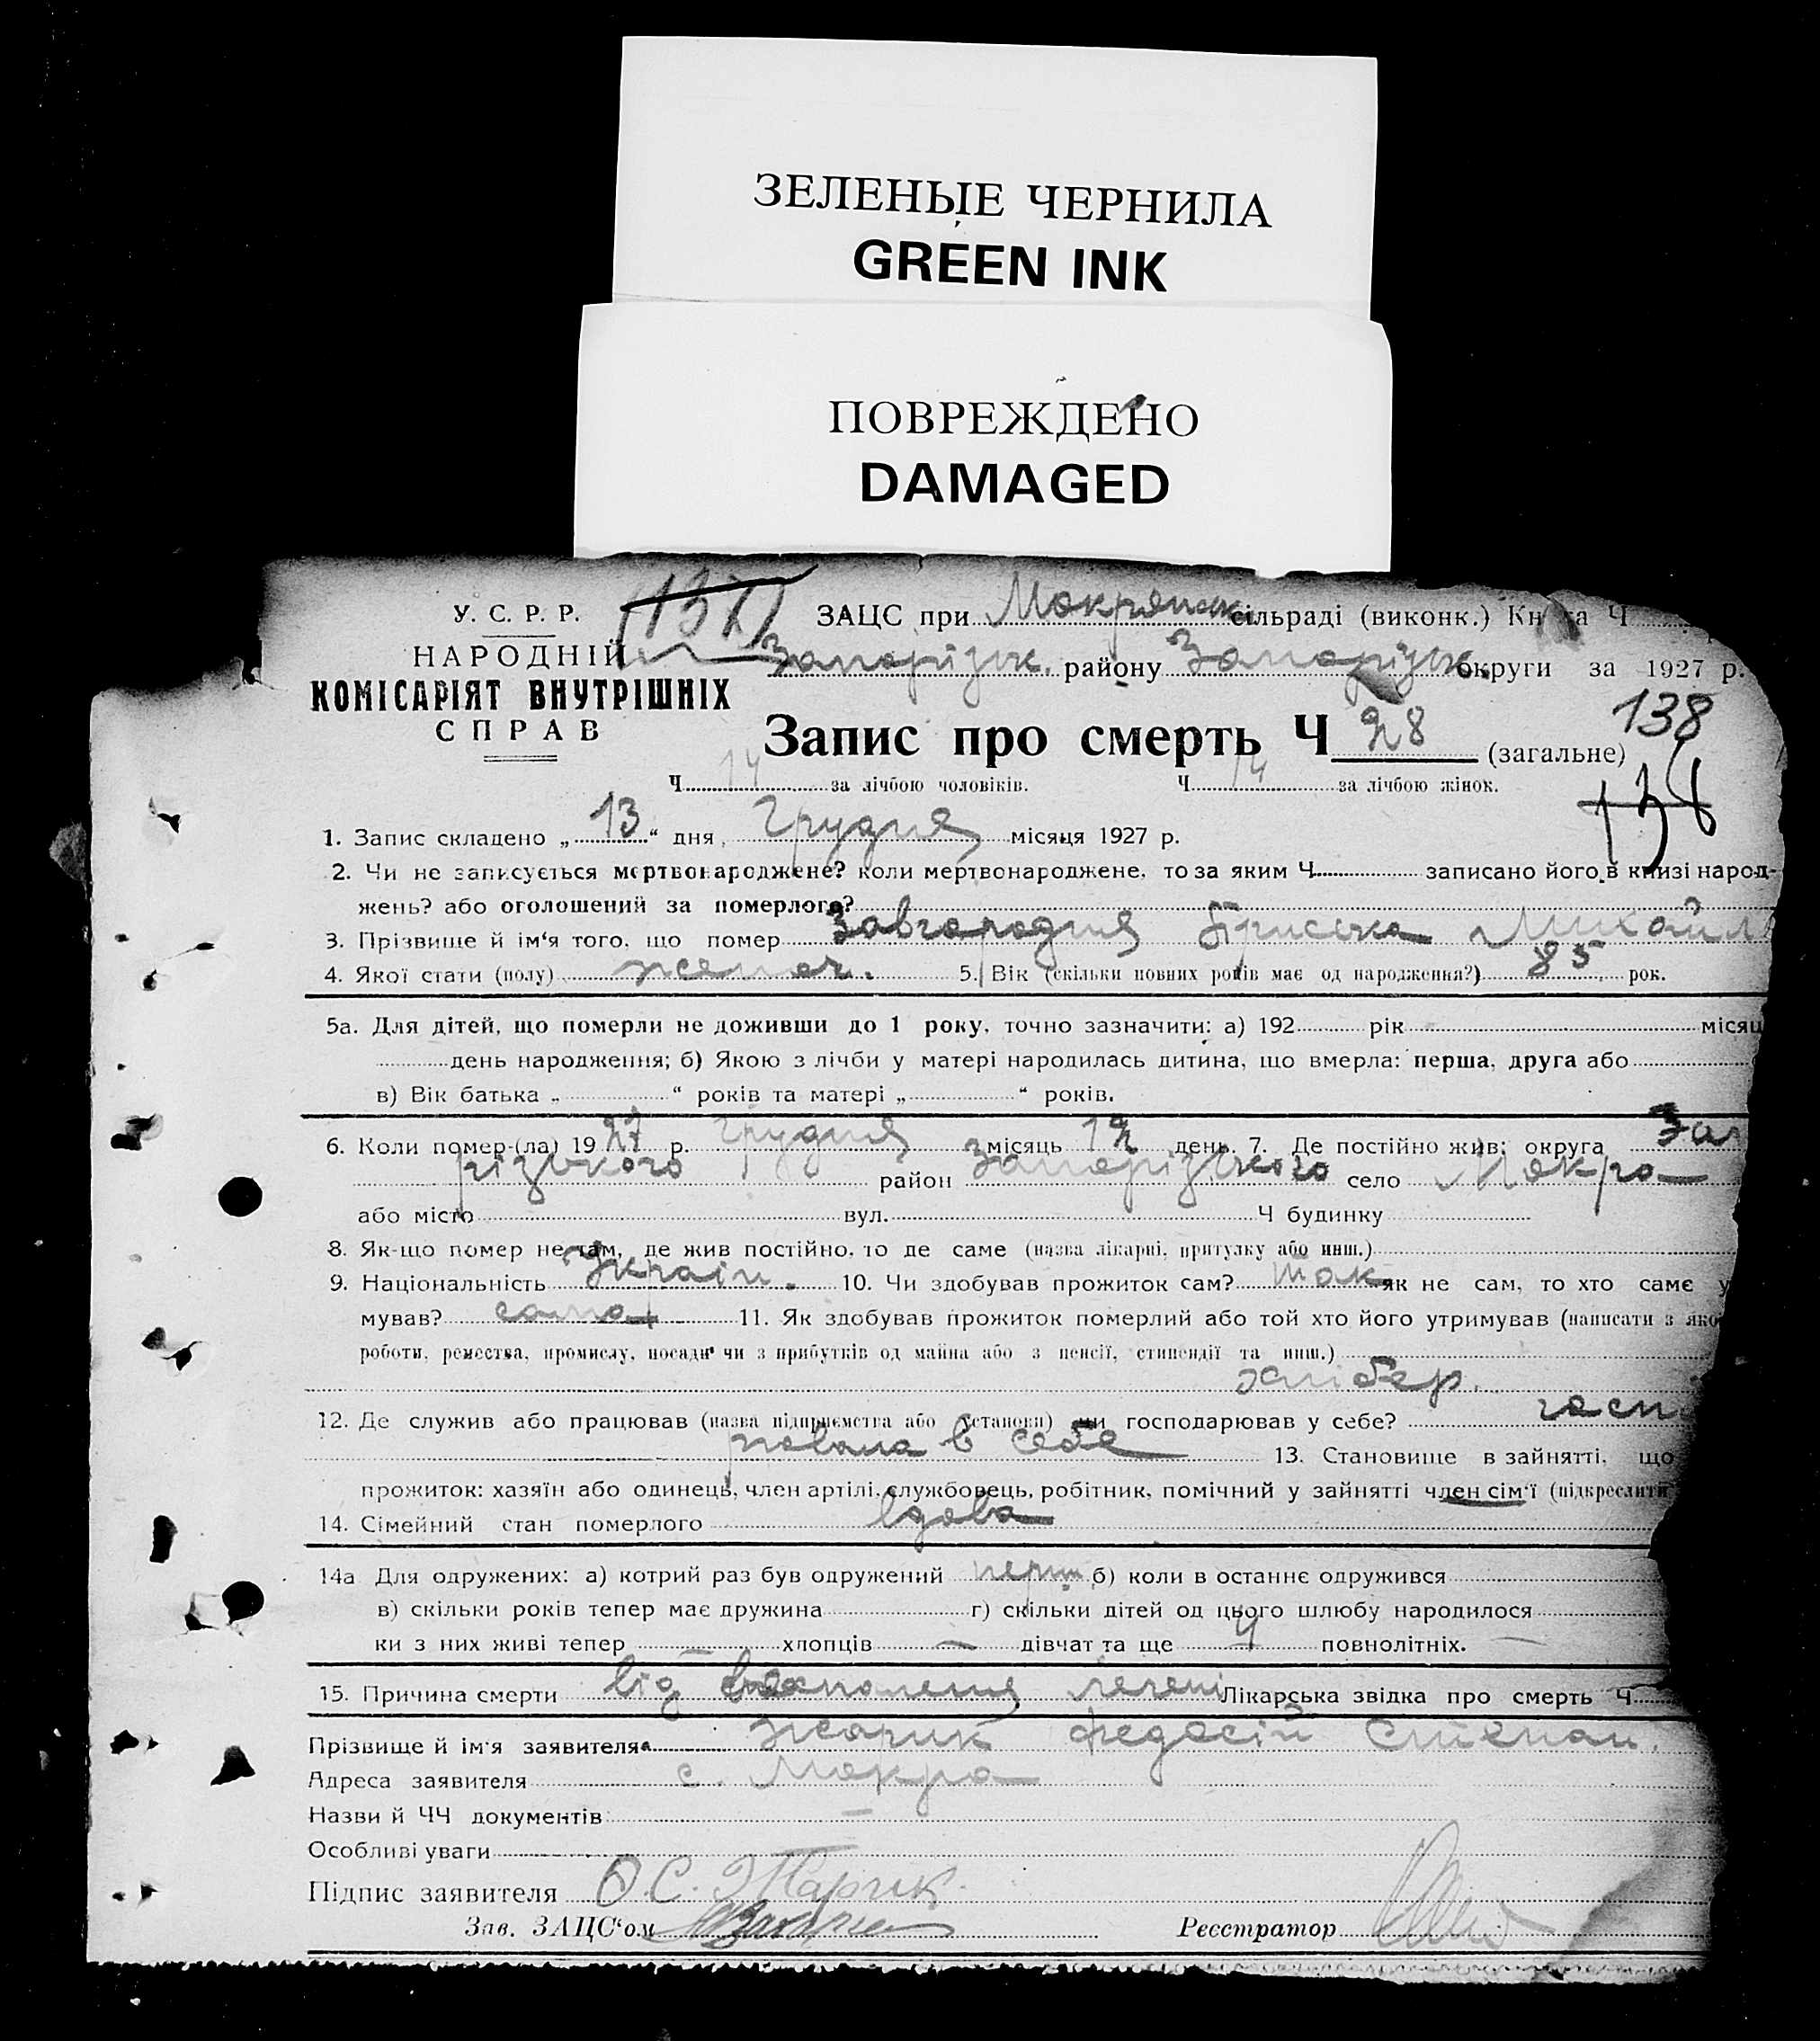 ЗЕЛЕНЫЕ ЧЕРНИЛА
GREEN INK
ПОВРЕЖДЕНО
DAMAGED
У. С. Р. Р. (137) ЗАЦС при Мокрянск. сільраді (виконк.) Книга Ч
НАРОДНІЙ Запорізьк. району Запорізьк. округи за 1927 р.
КОМІСАРІЯТ ВНУТРІШНІХ
СПРАВ
Запис про смерть Ч 28 (загальне) 138
Ч 14 за лічбою чоловіків. Ч 14 за лічбою жінок. 138
1. Запис складено „13“ дня, Грудня місяця 1927 р.
2. Чи не записується мертвонароджене? коли мертвонароджене, то за яким Ч записано його в книзі народ-
жень? або оголошений за померлого?
3. Прізвище й ім'я того, що помер Завгородня Михайл
4. Якої стати (полу) женоч. 5. Вік (скільки повних років має од народження?) 85 рок.
5а. Для дітей, що померли не доживши до 1 року, точно зазначити: а) 192 рік місяц
день народження; б) Якою з лічби у матері народилась дитина, що вмерла: перша, друга або
в) Вік батька „ “ років та матері „ “ років.
6. Коли помер-(ла) 1927 р. грудня місяць 12 день. 7. Де постійно жив: округа Запо
різького район Запорізького село Мокра
або місто вул. Ч будинку
8. Як-що помер не там, де жив постійно, то де саме (назва лікарні, притулку або инш.)
9. Національність Україн. 10. Чи здобував прожиток сам? так як не сам, то хто саме у
мував? сама 11. Як здобував прожиток померлий або той хто його утримував (написати з яко
роботи, ремества, промислу, посади чи з прибутків од майна або з пенсії, стипендії та инш.)
хлібор.
12. Де служив або працював (назва підприємства або установи) чи господарював у себе? госпо
рювала в себе 13. Становище в зайнятті, що
прожиток: хазяїн або одинець, член артілі, службовець, робітник, помічний у зайнятті член сім'ї (підкреслити
14. Сімейний стан померлого вдова
14а Для одружених: а) котрий раз був одружений перш. б) коли в останнє одружився
в) скільки років тепер має дружина г) скільки дітей од цього шлюбу народилося
ки з них живі тепер — хлопців — дівчат та ще 4 повнолітніх.
15. Причина смерти від печені Лікарська звідка про смерть Ч
Прізвище й ім'я заявителя Жарик Федосій Степан.
Адреса заявителя с. Мокра
Назви й ЧЧ документів —
Особливі уваги
Підпис заявителя Ф. С. Жарик.
Зав. ЗАЦС'ом Реєстратор